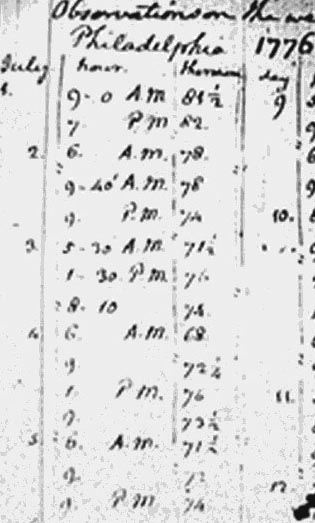 Observations on the we
Philadelphia 1776
July hour. thermom day
1. 9-0 A.M 81½ 9
7. P.M 82.
2. 6. A.M. 78.
9-40' A.M. 78
9. P.M. 74 10.
3. 5-30 A.M. 71½
1-30. P.M. 76
8-10 74.
4. 6. A.M. 68
9. 72¼
1. P.M. 76 11.
9. 73½
5. 6. A.M. 71½
9. 72 12.
9. P.M 74